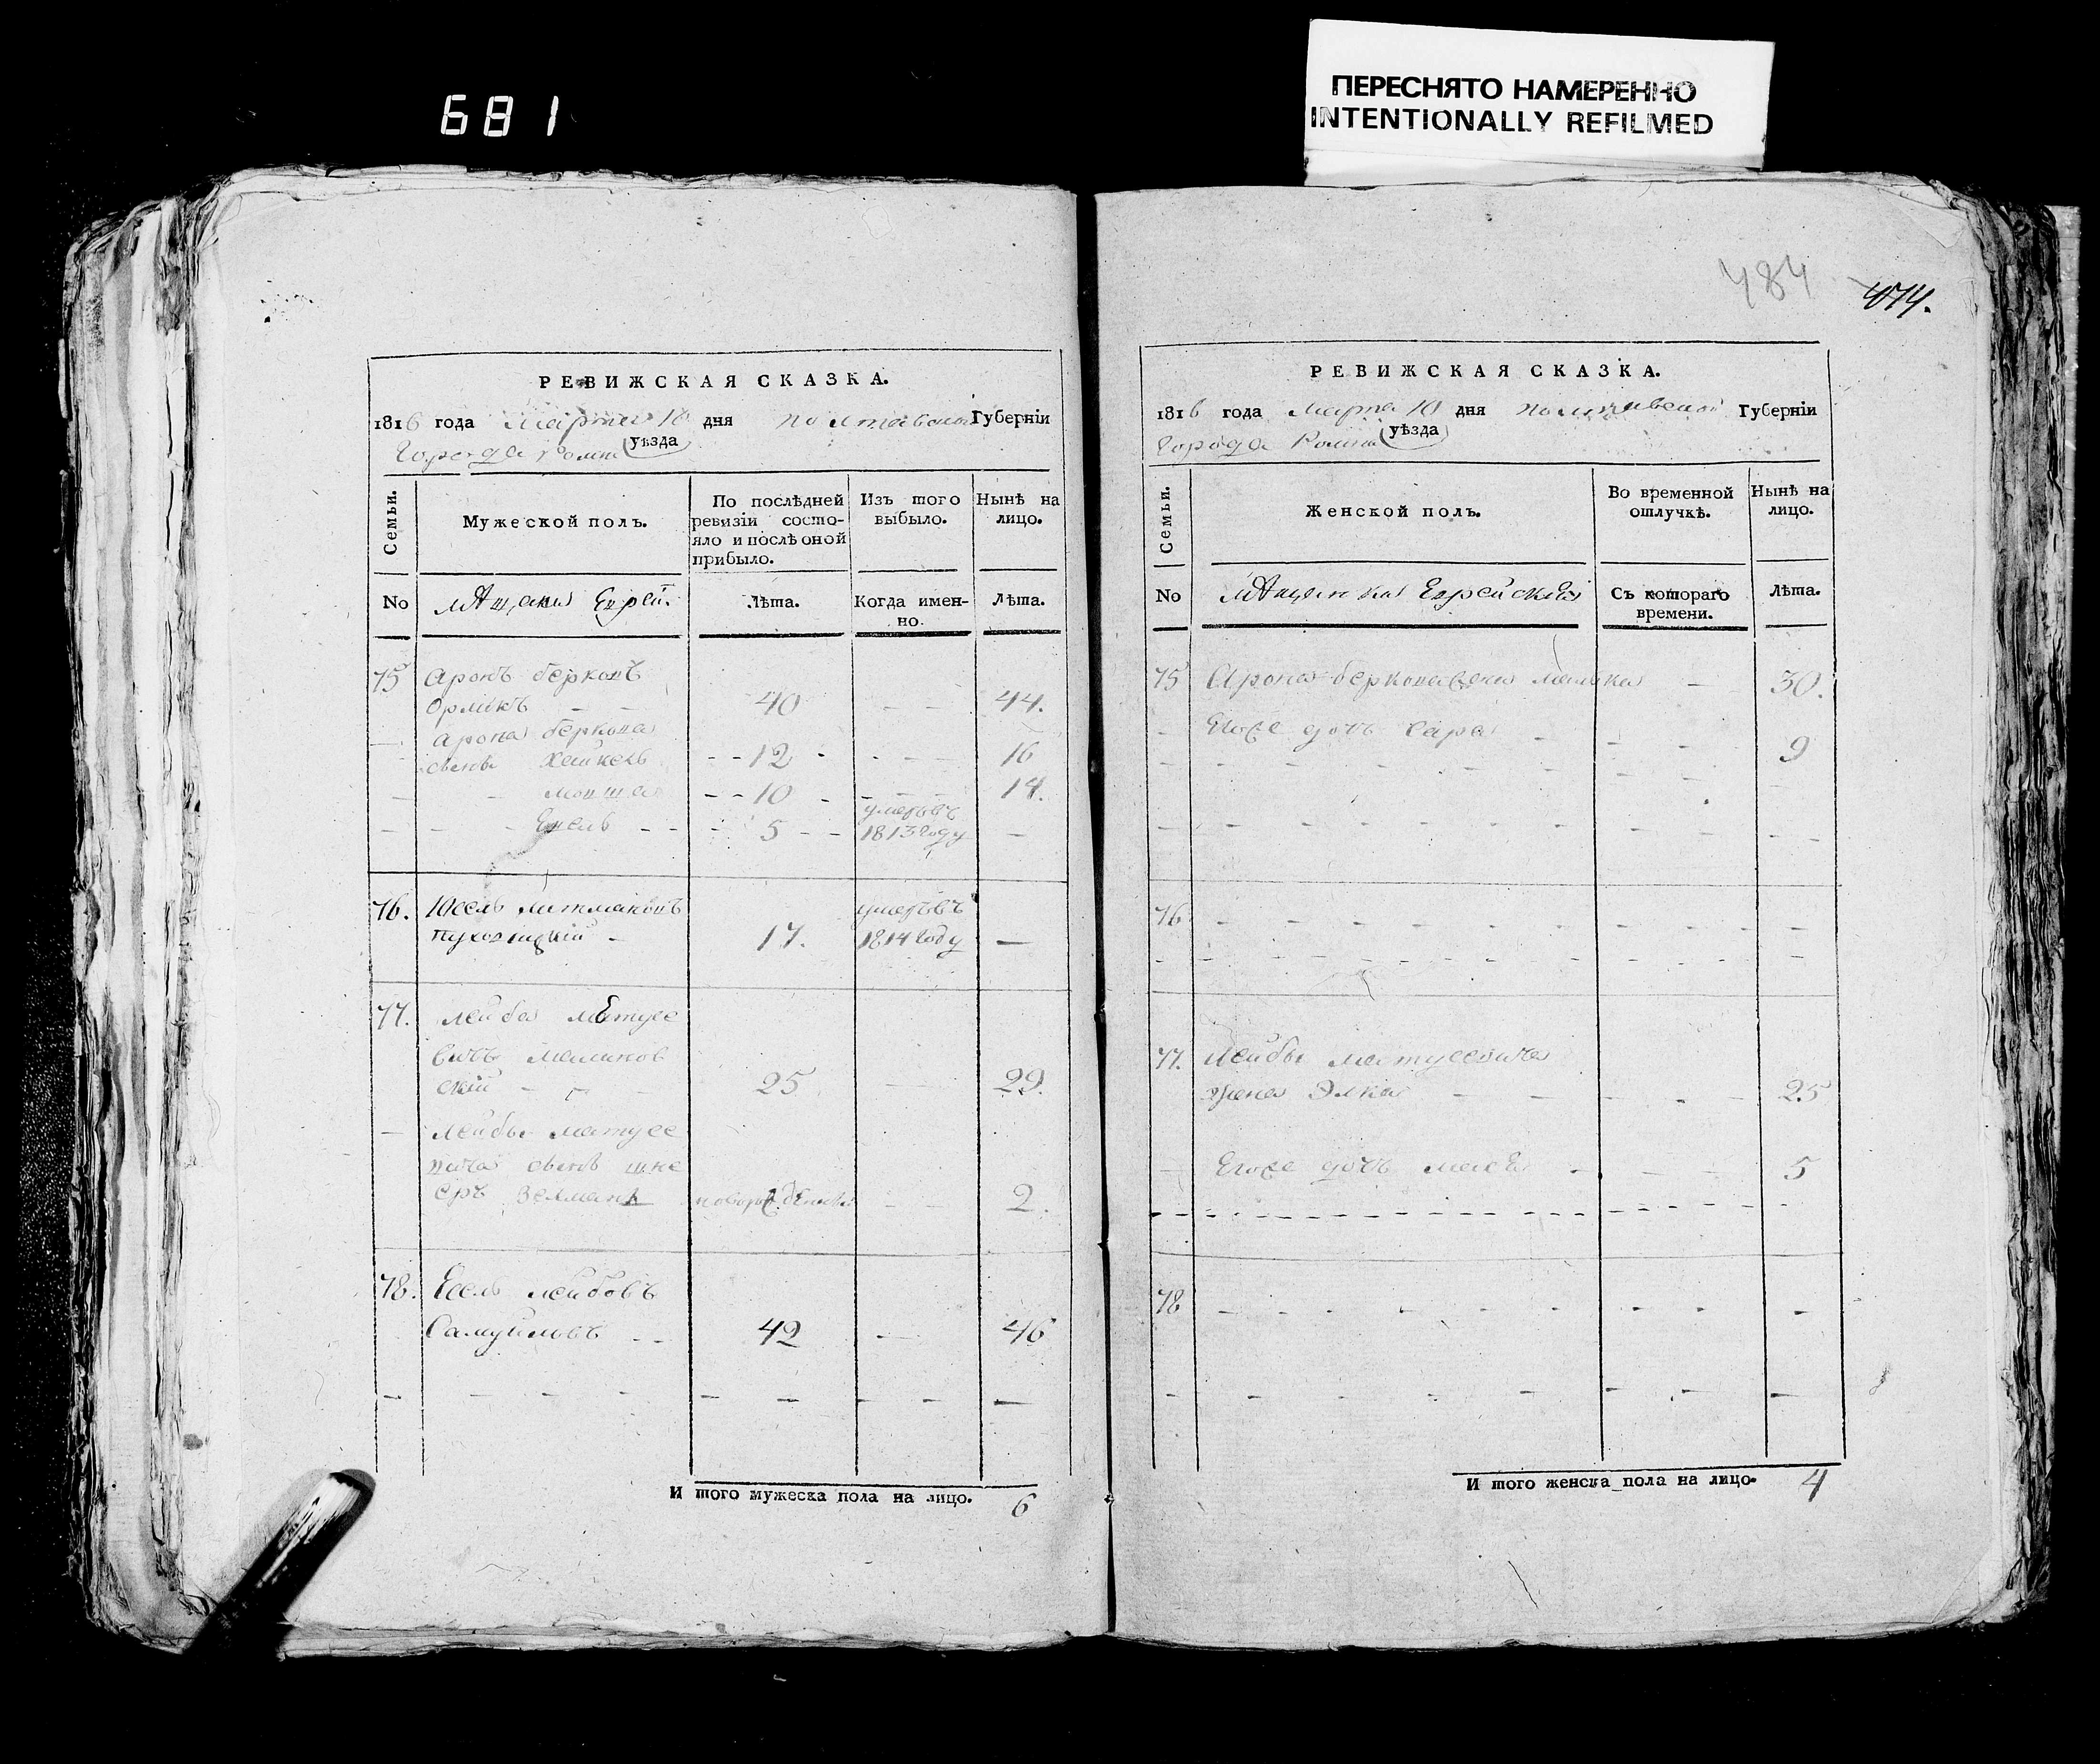 681
ПЕРЕСНЯТО НАМЕРЕННО
INTENTIONALLY REFILMED
РЕВИЖСКАЯ СКАЗКА.
1816 года Марта 10 дня Полтавской Губернїи
Города Ромна уѣзда
Семьи.
Мужеской полъ.
По послѣдней ревизїи состояло и послѣ оной прибыло.
Изъ того выбыло.
Нынѣ на лицо.
No
Мѣщане Евреи.
Лѣта.
Когда именно.
Лѣта.
75 Аронъ берковъ
Орликъ - - 40 - - 44.
Арона беркова
сынъ Хайкель - - 12 - - - 16
мовша - - 10 - - - 14.
умеръ въ
- - - - - 5 - - 1813 году -
76. Юсель литмановъ умеръ въ
17. 1814 году —
77. Лейба Матусе
вичь Малинов
ский - - 25 - 29.
Лейбы матусе
вича сынъ шне
еръ Зелманъ новорожденный - - 2.
78. Есель лейбовъ
Самуйловъ - - 42 - 46
И того мужеска пола на лицо. 6
484
474.
РЕВИЖСКАЯ СКАЗКА.
1816 года Марта 10 дня Полтавской Губернїи
Города Ромна уѣзда
Семьи.
Женской полъ.
Во временной отлучкѣ.
Нынѣ на лицо.
No
Мѣщанки Еврейскїя
Съ котораго времени.
Лѣта.
75 Арона беркова жена малка - 30.
Егоже дочь Сара - - - 9
76 - - - - - - - - -
77. Лейбы матусевича
жена Элка - - - - - 25
Егоже дочь - - - 5
78 - - - - - - - - -
И того женска пола на лицо. 4